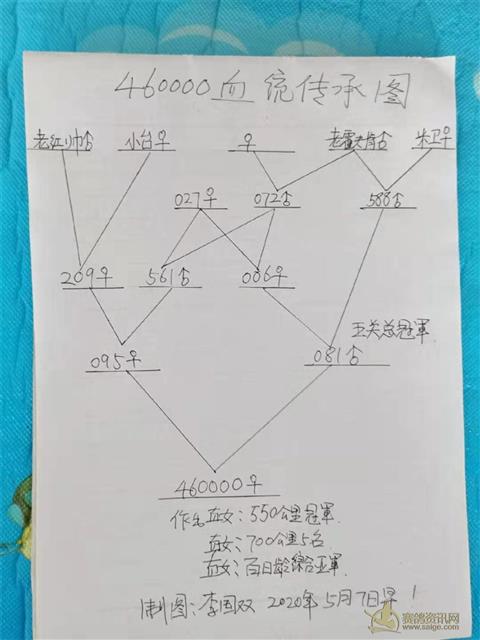 460000血统传承图
老红帅♂ 小台♀ ♀ 老霍夫肯♂ 朱卫♀
027♀ 072♂ 588♂
209♀ 561♂ 006♀
五关总冠軍
095♀ 081♂
460000♀
作出直女:550公里冠軍
直女:700公里5名
直女:百日龄综合亚軍
制图:李国双 2020年5月7日早
赛鸽资讯网
www.saige.com